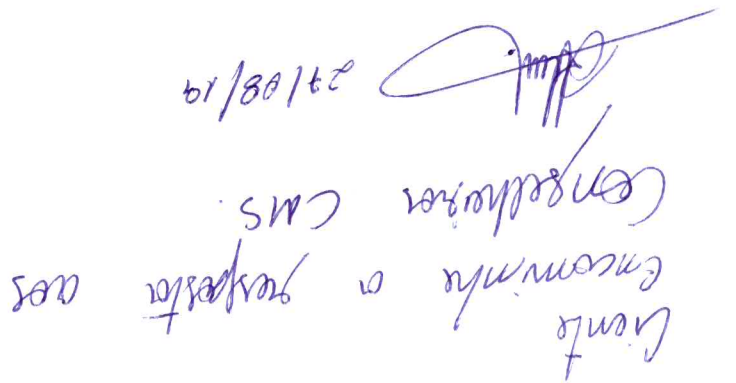 Ciente
Encaminhe a resposta aos
Conselheiros CMS.
27/08/19